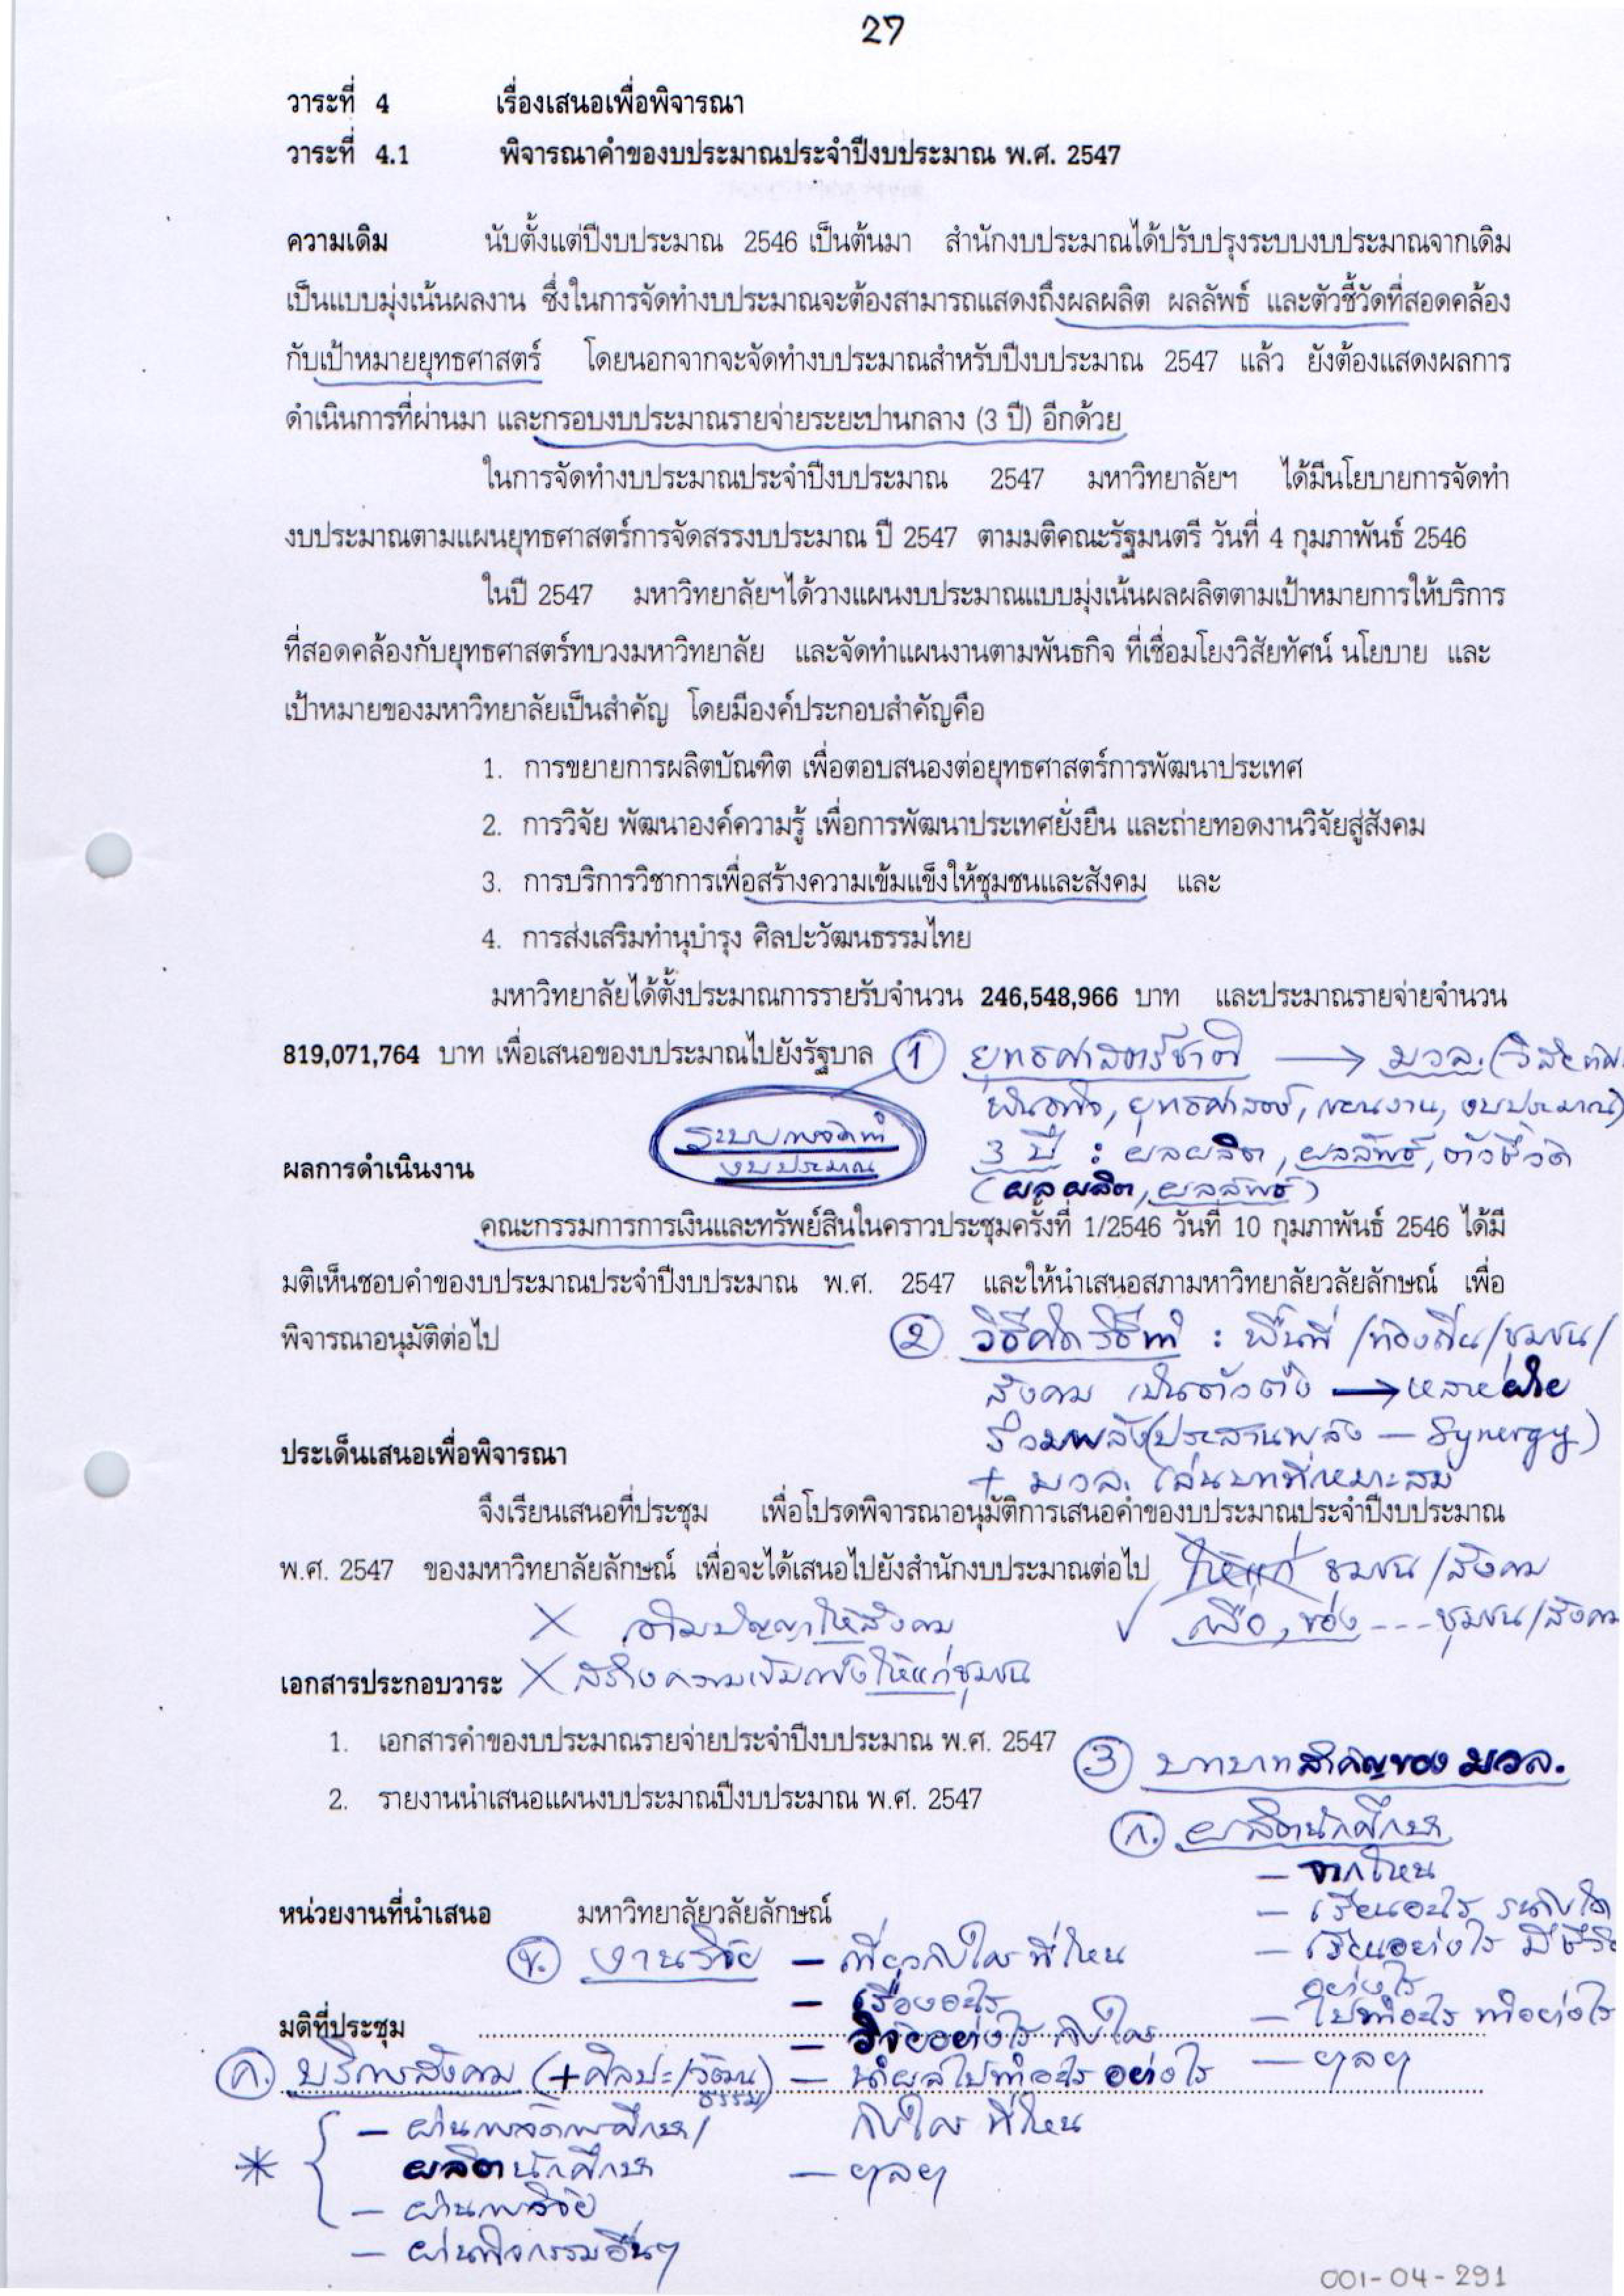 27
วาระที่ 4 เรื่องเสนอเพื่อพิจารณา
วาระที่ 4.1 พิจารณาคำของบประมาณประจำปีงบประมาณ พ.ศ. 2547
ความเดิม นับตั้งแต่ปีงบประมาณ 2546 เป็นต้นมา สำนักงบประมาณได้ปรับปรุงระบบงบประมาณจากเดิม
เป็นแบบมุ่งเน้นผลงาน ซึ่งในการจัดทำงบประมาณจะต้องสามารถแสดงถึงผลผลิต ผลลัพธ์ และตัวชี้วัดที่สอดคล้อง
กับเป้าหมายยุทธศาสตร์ โดยนอกจากจะจัดทำงบประมาณสำหรับปีงบประมาณ 2547 แล้ว ยังต้องแสดงผลการ
ดำเนินการที่ผ่านมา และกรอบงบประมาณรายจ่ายระยะปานกลาง (3 ปี) อีกด้วย
ในการจัดทำงบประมาณประจำปีงบประมาณ 2547 มหาวิทยาลัยฯ ได้มีนโยบายการจัดทำ
งบประมาณตามแผนยุทธศาสตร์การจัดสรรงบประมาณ ปี 2547 ตามมติคณะรัฐมนตรี วันที่ 4 กุมภาพันธ์ 2546
ในปี 2547 มหาวิทยาลัยฯได้วางแผนงบประมาณแบบมุ่งเน้นผลผลิตตามเป้าหมายการให้บริการ
ที่สอดคล้องกับยุทธศาสตร์ทบวงมหาวิทยาลัย และจัดทำแผนงานตามพันธกิจ ที่เชื่อมโยงวิสัยทัศน์ นโยบาย และ
เป้าหมายของมหาวิทยาลัยเป็นสำคัญ โดยมีองค์ประกอบสำคัญคือ
1. การขยายการผลิตบัณฑิต เพื่อตอบสนองต่อยุทธศาสตร์การพัฒนาประเทศ
2. การวิจัย พัฒนาองค์ความรู้ เพื่อการพัฒนาประเทศยั่งยืน และถ่ายทอดงานวิจัยสู่สังคม
3. การบริการวิชาการเพื่อสร้างความเข้มแข็งให้ชุมชนและสังคม และ
4. การส่งเสริมทำนุบำรุง ศิลปะวัฒนธรรมไทย
มหาวิทยาลัยได้ตั้งประมาณการรายรับจำนวน 246,548,966 บาท และประมาณรายจ่ายจำนวน
819,071,764 บาท เพื่อเสนอของบประมาณไปยังรัฐบาล
① ยุทธศาสตร์ชาติ → มวล. (วิสัยทัศน์
พันธกิจ, ยุทธศาสตร์, แผนงาน, งบประมาณ)
ระบบการจัดทำ
งบประมาณ
3 ปี : ผลผลิต, ผลลัพธ์, ตัวชี้วัด
(ผลผลิต, ผลลัพธ์)
ผลการดำเนินงาน
คณะกรรมการการเงินและทรัพย์สินในคราวประชุมครั้งที่ 1/2546 วันที่ 10 กุมภาพันธ์ 2546 ได้มี
มติเห็นชอบคำของบประมาณประจำปีงบประมาณ พ.ศ. 2547 และให้นำเสนอสภามหาวิทยาลัยวลัยลักษณ์ เพื่อ
พิจารณาอนุมัติต่อไป
② วิธีคิดวิธีทำ : พื้นที่ /ท้องถิ่น/ชุมชน/
สังคม เป็นตัวตั้ง → หลายฝ่าย
ร่วมพลัง(ประสานพลัง – Synergy)
+ มวล. เล่นบทที่เหมาะสม
ประเด็นเสนอเพื่อพิจารณา
จึงเรียนเสนอที่ประชุม เพื่อโปรดพิจารณาอนุมัติการเสนอคำของบประมาณประจำปีงบประมาณ
พ.ศ. 2547 ของมหาวิทยาลัยลักษณ์ เพื่อจะได้เสนอไปยังสำนักงบประมาณต่อไป
ให้แก่ ชุมชน/สังคม
✓ เพื่อ, ของ --- ชุมชน/สังคม
X เติมปัญญาให้สังคม
X สร้างความเข้มแข็งให้แก่ชุมชน
เอกสารประกอบวาระ
1. เอกสารคำของบประมาณรายจ่ายประจำปีงบประมาณ พ.ศ. 2547
2. รายงานนำเสนอแผนงบประมาณปีงบประมาณ พ.ศ. 2547
③ บทบาทสำคัญของ มวล.
ก. ผลิตนักศึกษา
– จากไหน
– เรียนอะไร ระดับใด
– เรียนอย่างไร มีชีวิต
อย่างไร
– ไปทำอะไร ทำอย่างไร
– ฯลฯ
หน่วยงานที่นำเสนอ มหาวิทยาลัยวลัยลักษณ์
ข. งานวิจัย – เกี่ยวกับใคร ที่ไหน
– เรื่องอะไร
– วิจัยอย่างไร กับใคร
– นำผลไปทำอะไร อย่างไร
กับใคร ที่ไหน
– ฯลฯ
มติที่ประชุม
ค. บริการสังคม (+ศิลปะ/วัฒนธรรม)
* – ผ่านการจัดการศึกษา/
ผลิตนักศึกษา
– ผ่านการวิจัย
– ผ่านกิจกรรมอื่นๆ
001-04-291